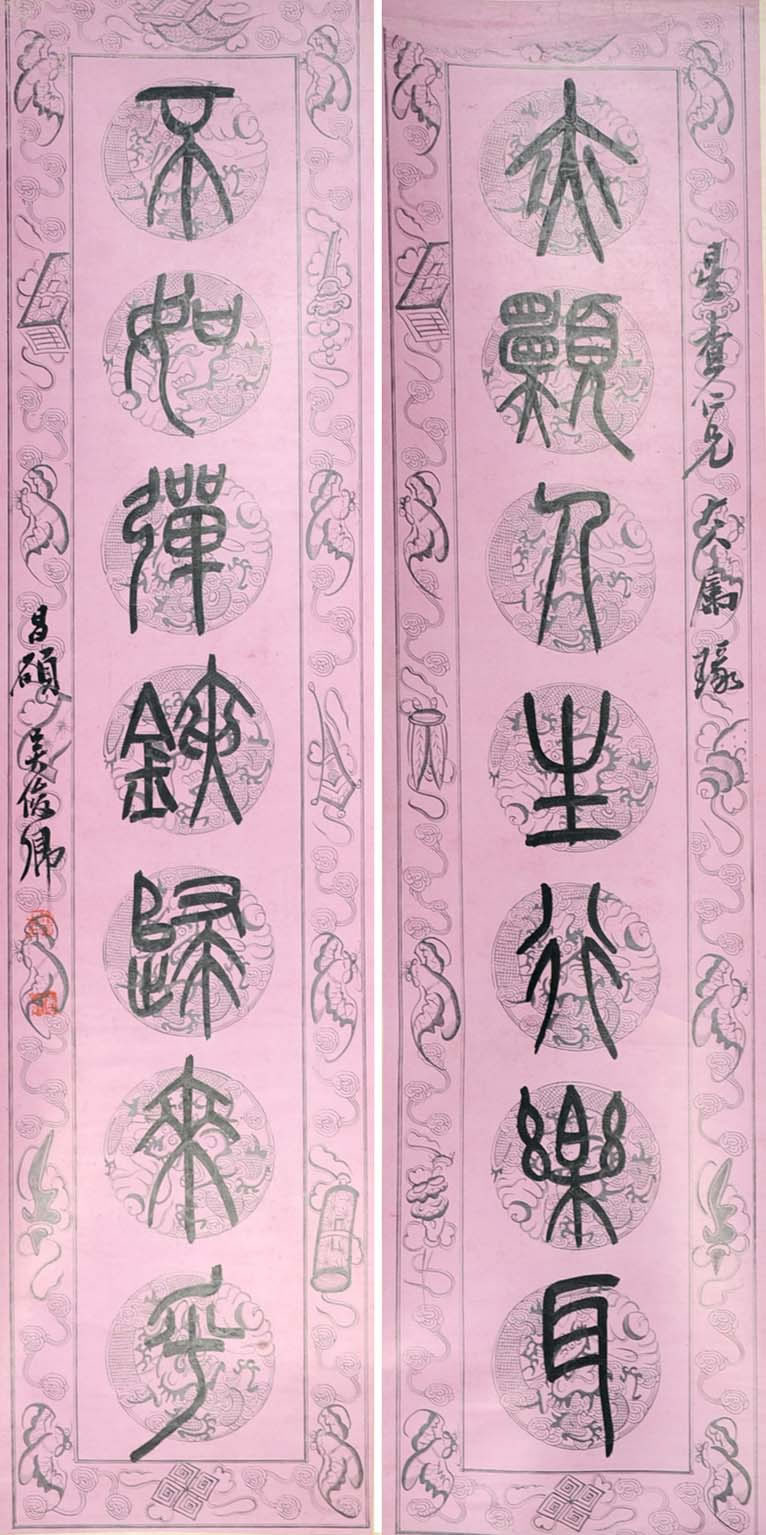 星查仁兄大人屬瑑
亦願人生行樂耳
不如彈鋏歸來乎
昌碩吳俊卿